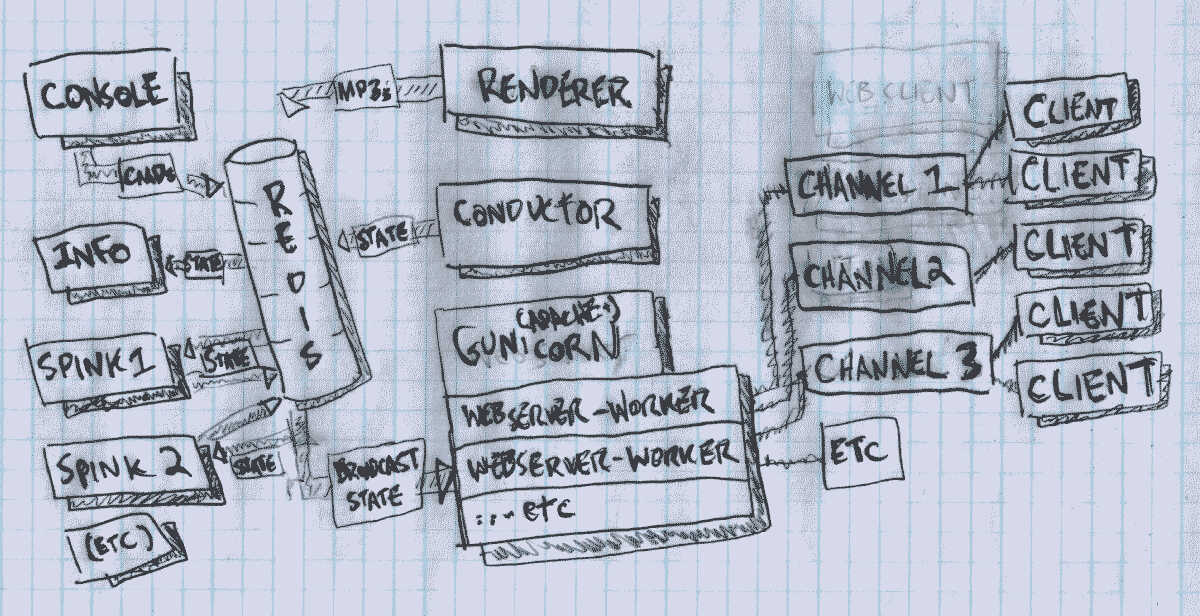 CONSOLE
CMDs
INFO
STATE
SPINK 1
STATE
SPINK 2
STATE
(ETC)
REDIS
MP3s
RENDERER
STATE
CONDUCTOR
(APACHE+)
GUNICORN
WEBSERVER-WORKER
WEBSERVER-WORKER
... etc
BROADCAST
STATE
WEBSCLIENT
CHANNEL 1
CHANNEL 2
CHANNEL 3
ETC
CLIENT
CLIENT
CLIENT
CLIENT
CLIENT